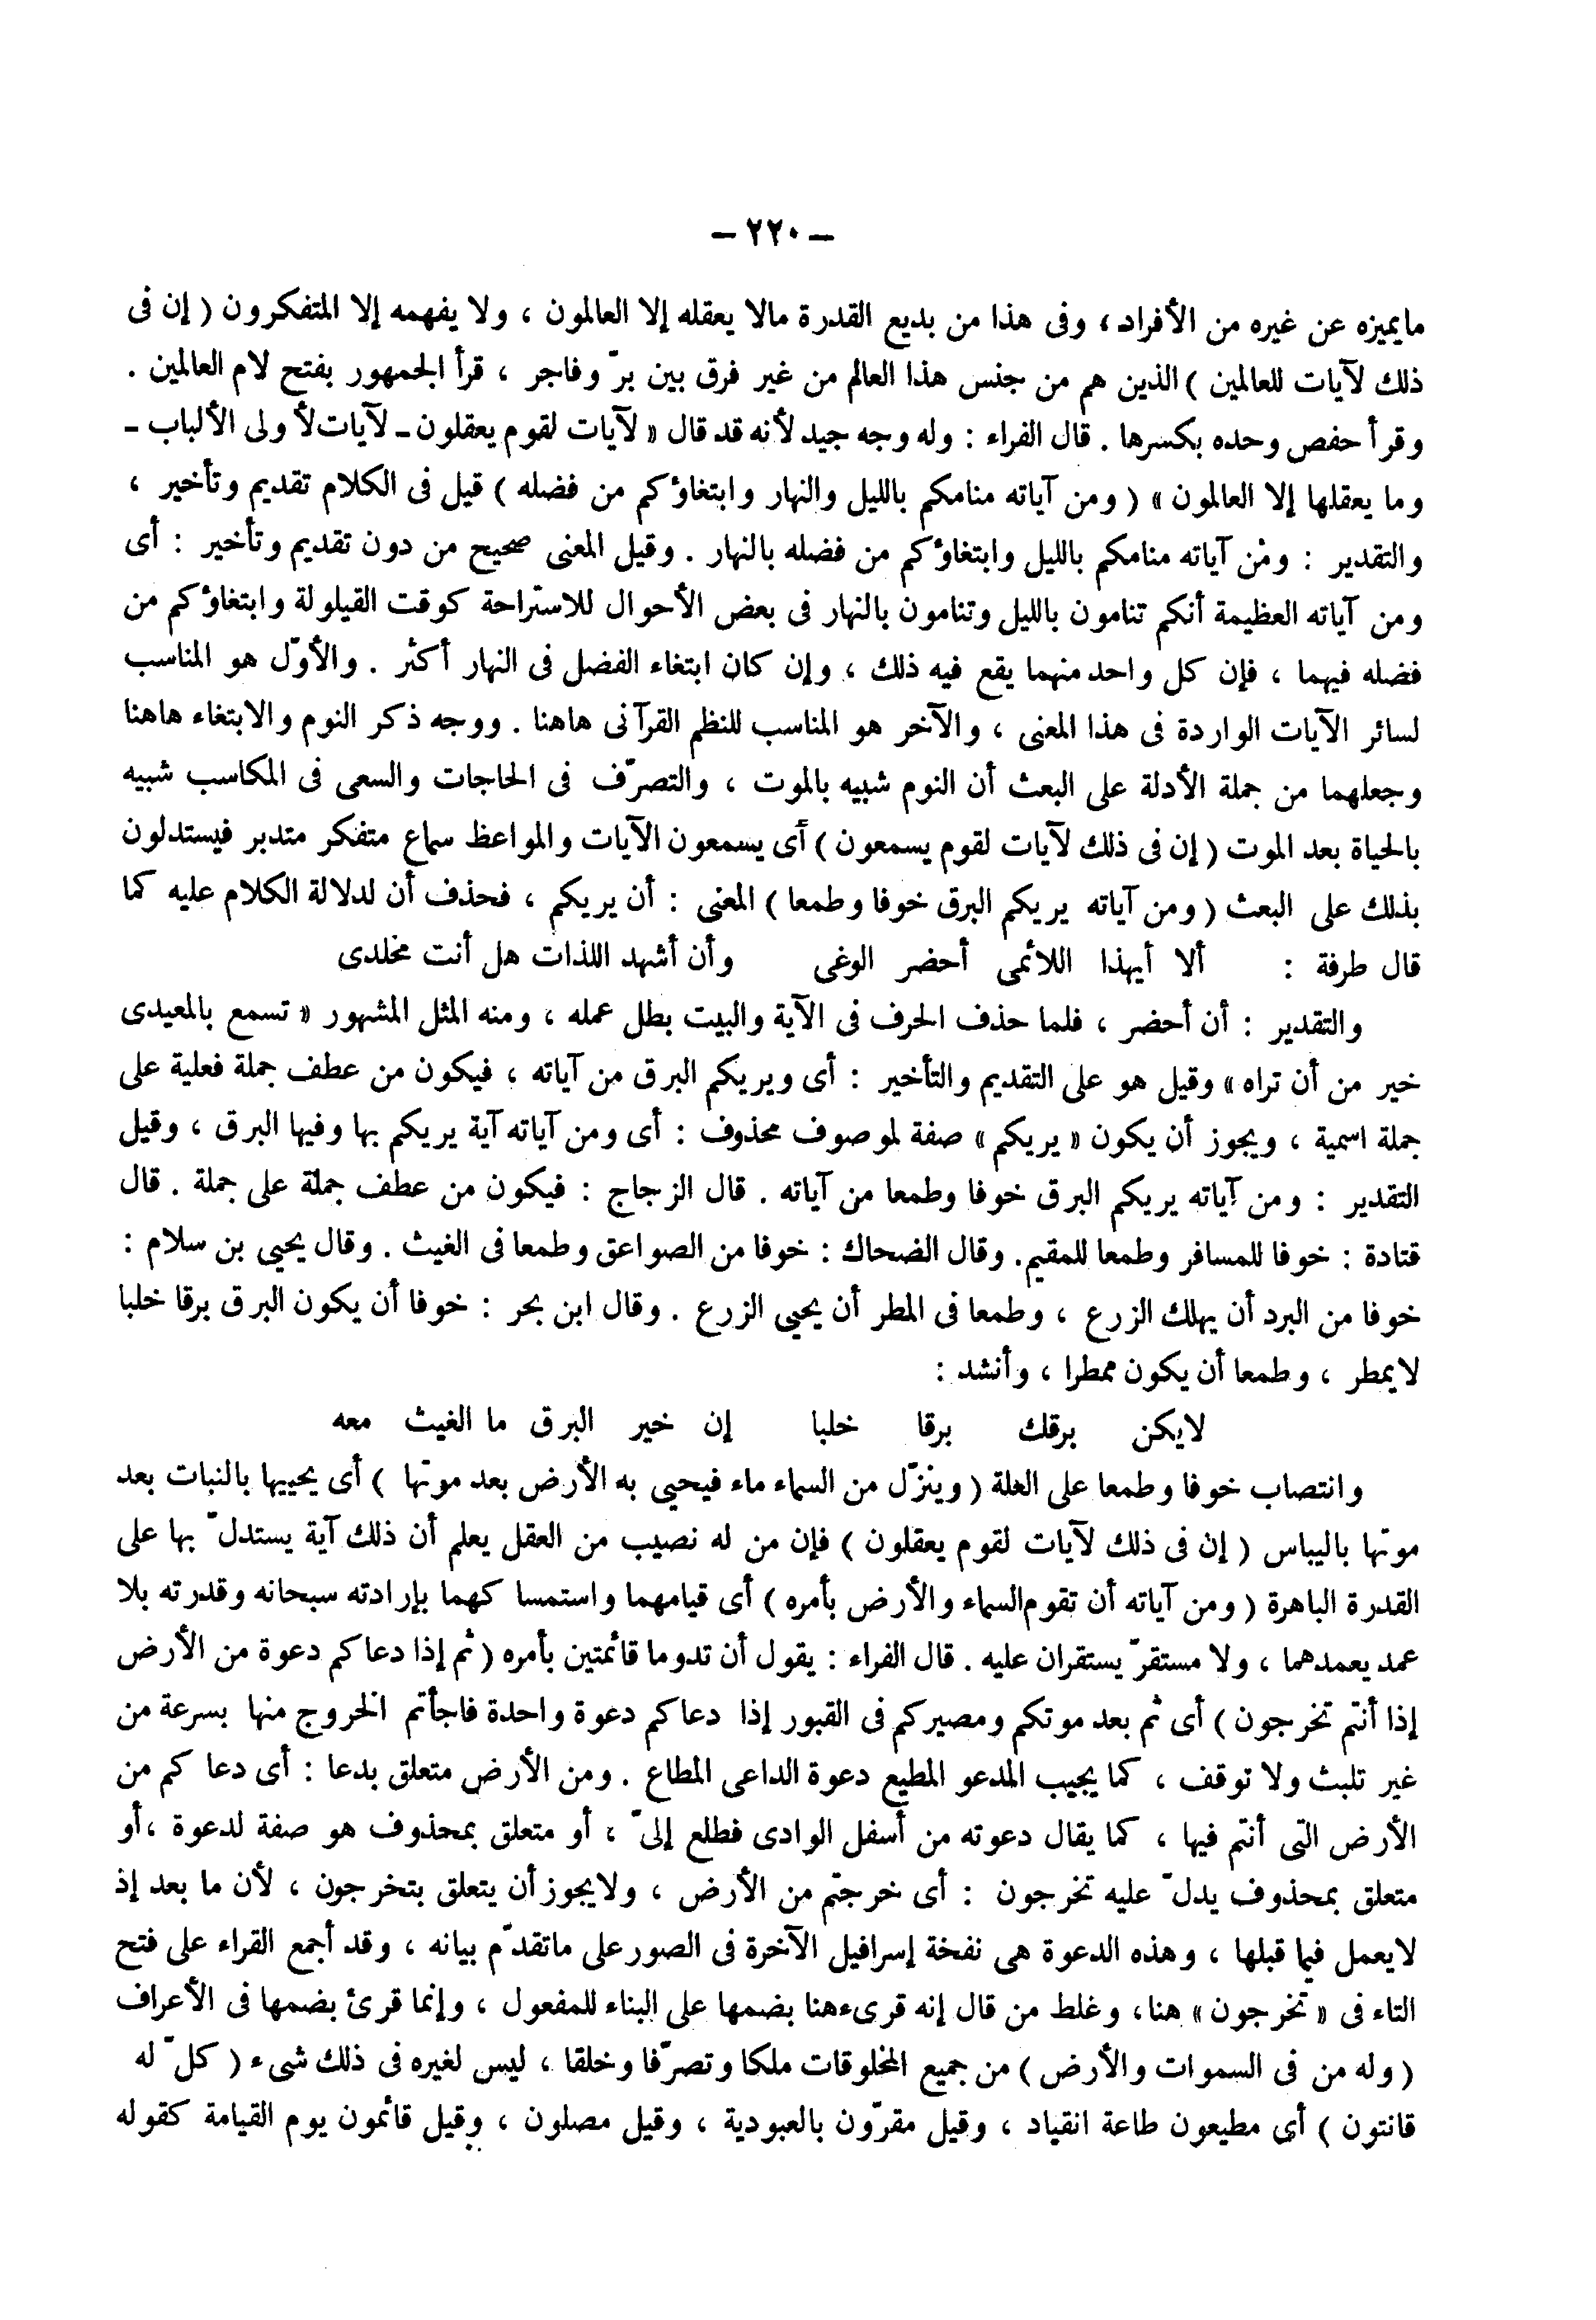 — ٢٢٠ —
مايميزه عن غيره من الأفراد، وفى هذا من بديع القدرة مالا يعقله إلا العالمون ، ولا يفهمه إلا المتفكرون ( إن فى
ذلك لآيات للعالمين ) الذين هم من جنس هذا العالم من غير فرق بين برّ وفاجر ، قرأ الجمهور بفتح لام العالمين .
وقرأ حفص وحده بكسرها . قال الفراء : وله وجه جيد لأنه قد قال « لآيات لقوم يعقلون ـ لآيات لأولى الألباب ـ
وما يعقلها إلا العالمون » ( ومن آياته منامكم بالليل والنهار وابتغاؤكم من فضله ) قيل فى الكلام تقديم وتأخير ،
والتقدير : ومن آياته منامكم بالليل وابتغاؤكم من فضله بالنهار . وقيل المعنى صحيح من دون تقديم وتأخير : أى
ومن آياته العظيمة أنكم تنامون بالليل وتنامون بالنهار فى بعض الأحوال للاستراحة كوقت القيلولة وابتغاؤكم من
فضله فيهما ، فإن كل واحد منهما يقع فيه ذلك ، وإن كان ابتغاء الفضل فى النهار أكثر . والأوّل هو المناسب
لسائر الآيات الواردة فى هذا المعنى ، والآخر هو المناسب للنظم القرآنى هاهنا . ووجه ذكر النوم والابتغاء هاهنا
وجعلهما من جملة الأدلة على البعث أن النوم شبيه بالموت ، والتصرّف فى الحاجات والسعى فى المكاسب شبيه
بالحياة بعد الموت ( إن فى ذلك لآيات لقوم يسمعون ) أى يسمعون الآيات والمواعظ سماع متفكر متدبر فيستدلون
بذلك على البعث ( ومن آياته يريكم البرق خوفا وطمعا ) المعنى : أن يريكم ، فحذف أن لدلالة الكلام عليه كما
قال طرفة : ألا أيهذا اللائمى أحضر الوغى وأن أشهد اللذات هل أنت مخلدى
والتقدير : أن أحضر ، فلما حذف الحرف فى الآية والبيت بطل عمله ، ومنه المثل المشهور « تسمع بالمعيدى
خير من أن تراه » وقيل هو على التقديم والتأخير : أى ويريكم البرق من آياته ، فيكون من عطف جملة فعلية على
جملة اسمية ، ويجوز أن يكون « يريكم » صفة لموصوف محذوف : أى ومن آياته آية يريكم بها وفيها البرق ، وقيل
التقدير : ومن آياته يريكم البرق خوفا وطمعا من آياته . قال الزجاج : فيكون من عطف جملة على جملة . قال
قتادة : خوفا للمسافر وطمعا للمقيم. وقال الضحاك : خوفا من الصواعق وطمعا فى الغيث . وقال يحيى بن سلام :
خوفا من البرد أن يهلك الزرع ، وطمعا فى المطر أن يحيى الزرع . وقال ابن بحر : خوفا أن يكون البرق برقا خلبا
لايمطر ، وطمعا أن يكون ممطرا ، وأنشد :
لايكن برقك برقا خلبا إن خير البرق ما الغيث معه
وانتصاب خوفا وطمعا على العلة ( وينزّل من السماء ماء فيحيى به الأرض بعد موتها ) أى يحييها بالنبات بعد
موتها باليباس ( إن فى ذلك لآيات لقوم يعقلون ) فإن من له نصيب من العقل يعلم أن ذلك آية يستدلّ بها على
القدرة الباهرة ( ومن آياته أن تقوم السماء والأرض بأمره ) أى قيامهما واستمساكهما بإرادته سبحانه وقدرته بلا
عمد يعمدهما ، ولا مستقرّ يستقران عليه . قال الفراء : يقول أن تدوما قائمتين بأمره ( ثم إذا دعاكم دعوة من الأرض
إذا أنتم تخرجون ) أى ثم بعد موتكم ومصيركم فى القبور إذا دعاكم دعوة واحدة فاجأتم الخروج منها بسرعة من
غير تلبث ولا توقف ، كما يجيب المدعو المطيع دعوة الداعى المطاع . ومن الأرض متعلق بدعا : أى دعاكم من
الأرض التى أنتم فيها ، كما يقال دعوته من أسفل الوادى فطلع إلىّ ، أو متعلق بمحذوف هو صفة لدعوة ،أو
متعلق بمحذوف يدلّ عليه تخرجون : أى خرجتم من الأرض ، ولايجوز أن يتعلق بتخرجون ، لأن ما بعد إذ
لايعمل فيما قبلها ، وهذه الدعوة هى نفخة إسرافيل الآخرة فى الصور على ماتقدّم بيانه ، وقد أجمع القراء على فتح
التاء فى « تخرجون » هنا، وغلط من قال إنه قرىء هنا بضمها على البناء للمفعول ، وإنما قرئ بضمها فى الأعراف
( وله من فى السموات والأرض ) من جميع المخلوقات ملكا وتصرّفا وخلقا ، ليس لغيره فى ذلك شىء ( كلّ له
قانتون ) أى مطيعون طاعة انقياد ، وقيل مقرّون بالعبودية ، وقيل مصلون ، وقيل قائمون يوم القيامة كقوله